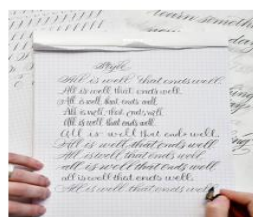 learn something
All is well that ends well.
All is well that ends well.
All is well that ends well.
All is well that ends well.
All is well that ends well.
All is well that ends well.
All is well that ends well.
All is well that ends well.
all is well that ends well.
all is well that ends well.
All is well that ends well